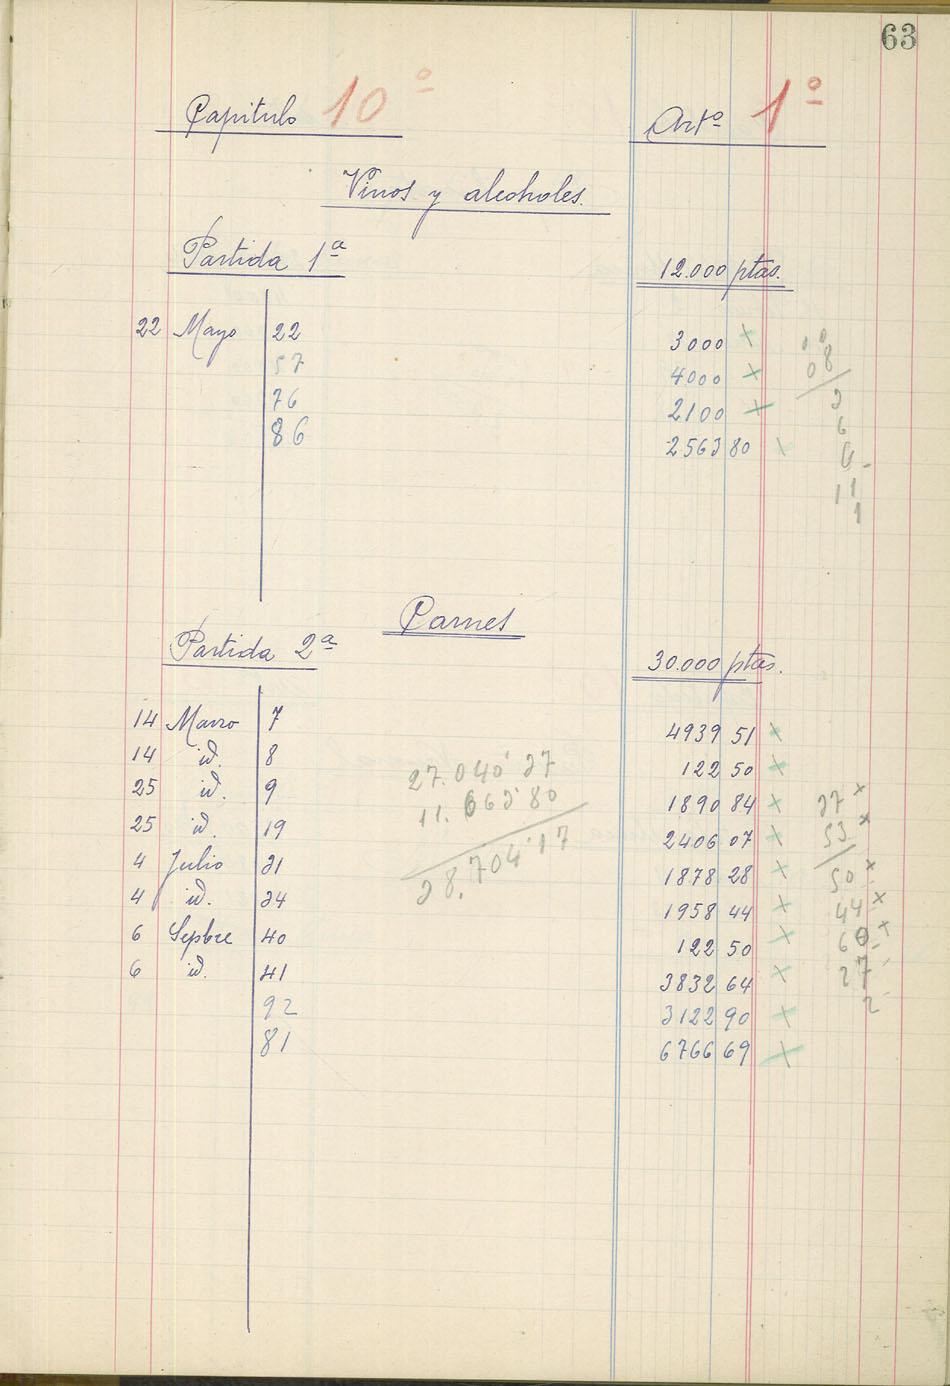 63
Capitulo 10º Artº 1º
Vinos y alcoholes.
Partida 1ª 12.000 ptas.
22 Mayo 22 3000 x
57 4000 x
76 2100 x
86 2563 80 x
08
3
6
11
1
Carnes
Partida 2ª 30.000 ptas.
14 Marzo 7 4939 51 x
14 id. 8 122 50 x
25 id. 9 1890 84 x
25 id. 19 2406 07 x
4 Julio 31 1878 28 x
4 id. 34 1958 44 x
6 Sepbre 40 122 50 x
6 id. 41 3832 64 x
92 3122 90 x
81 6766 69 x
27.040'37
11.663'80
38.704'17
37 x
53 x
50 x
44 x
60 x
27
2